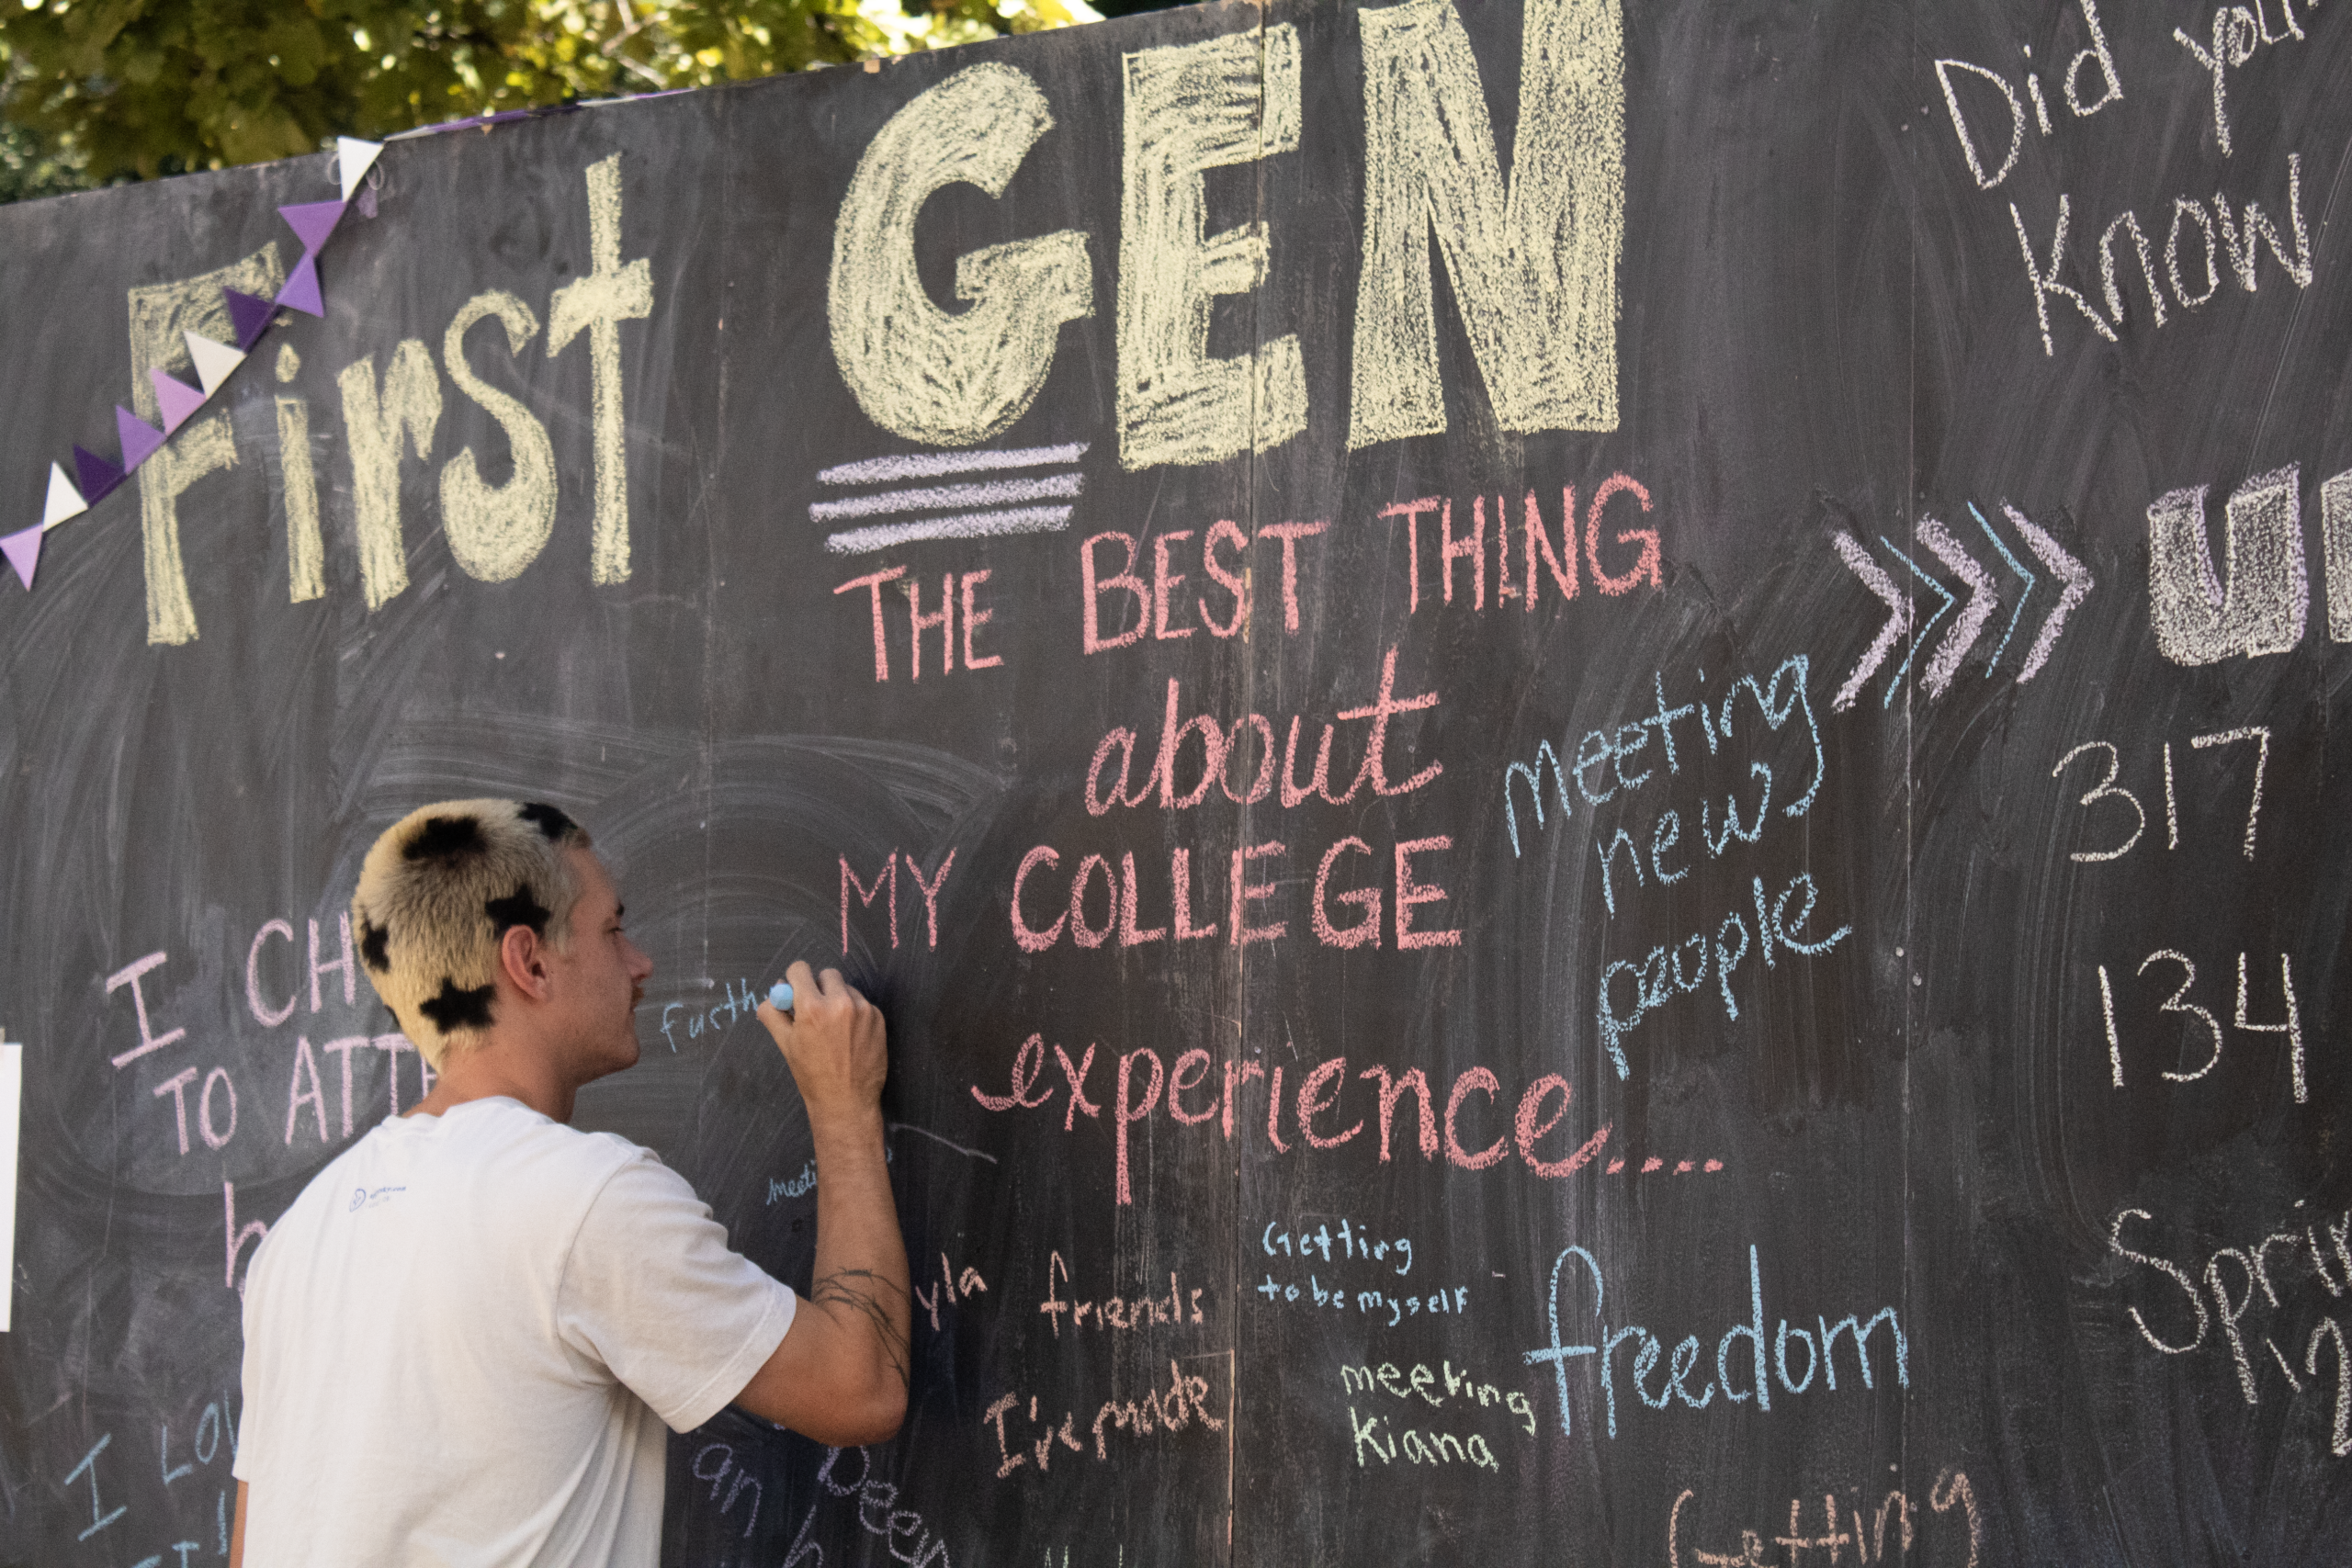 First GEN
Did you
Know
THE BEST THING
about
MY COLLEGE
experience....
meeting
new
people
317
134
I CH
TO ATT
Furth
meeti
yla
friends
I've made
Getting
to be myself
meeting
Kiana
freedom
Sprin
I LOV
an
been
Getting